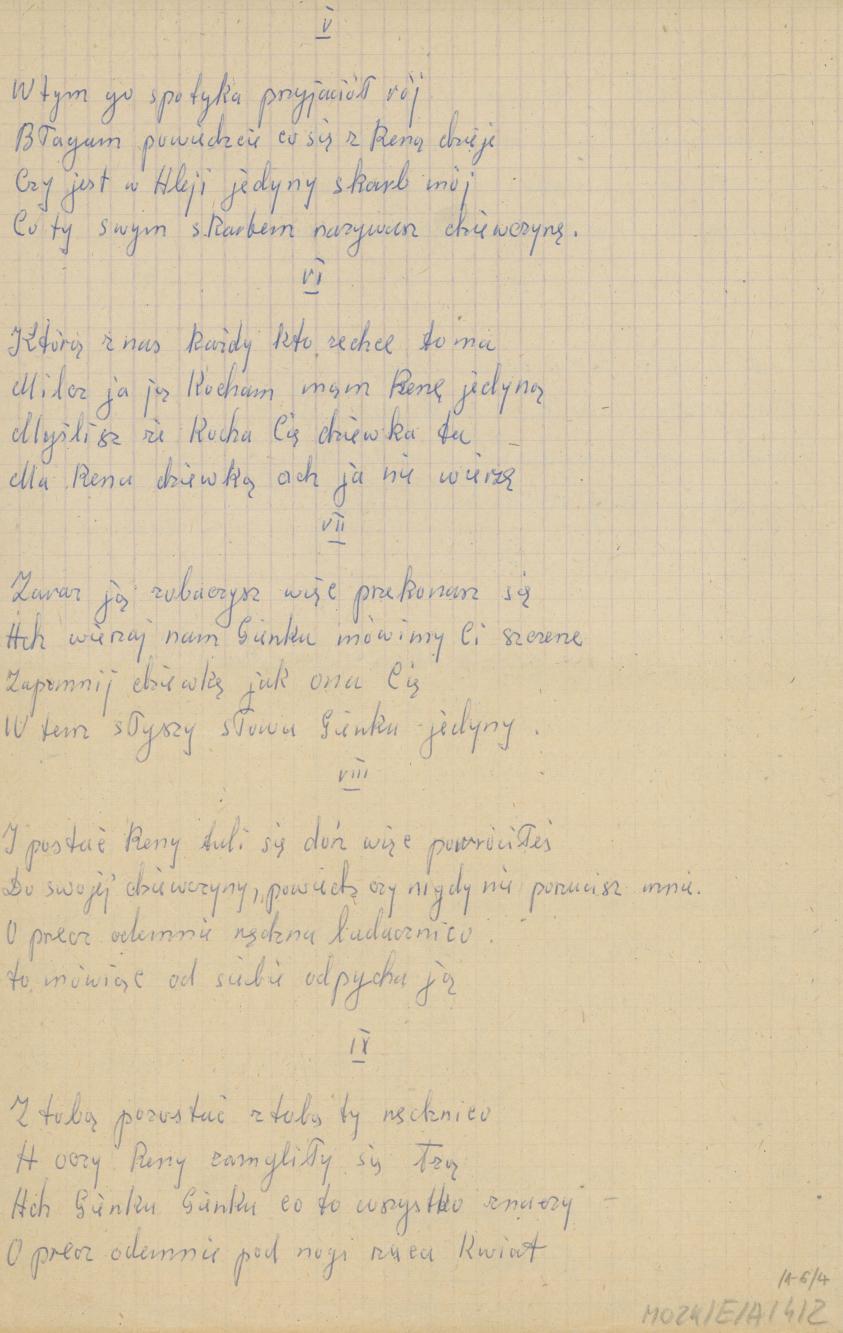 V
W tym go spotyka przyjaciół rój
Błagam powiedzcie co się z Reną dzieje
Czy jest w Aleji jedyny skarb mój
Co ty swym skarbem nazywasz dziewczynę.
VI
Którą z nas każdy kto zechce to ma
Milcz ja ją Kocham mąm Renę jedyną
Myślisz że Kocha Cię dziewka ta
Ma Rena dziewką ach ja nie wierzę
VII
Zaraz ją zobaczysz więc przekonasz się
Ach wierzaj nam Gienku mówimy Ci szczerze
Zapomnij dziewkę jak ona Cię
W tem słyszy słowa Gienku jedyny.
VIII
I postać Reny tuli się doń więc powróciłeś
Do swojej dziewczyny, powiedz czy nigdy nie porzucisz mnie.
O precz odemnie nędzna ladacznico.
to mówiąc od siebie odpycha ją
IX
Z tobą pozostać z tobą ty nędznico
A oczy Reny zamgliły się łzą
Ach Gienku Gienku co to wszystko znaczy
O precz odemnie pod nogi rzuca Kwiat
/A-6/4
MOZK/E/A/4/2